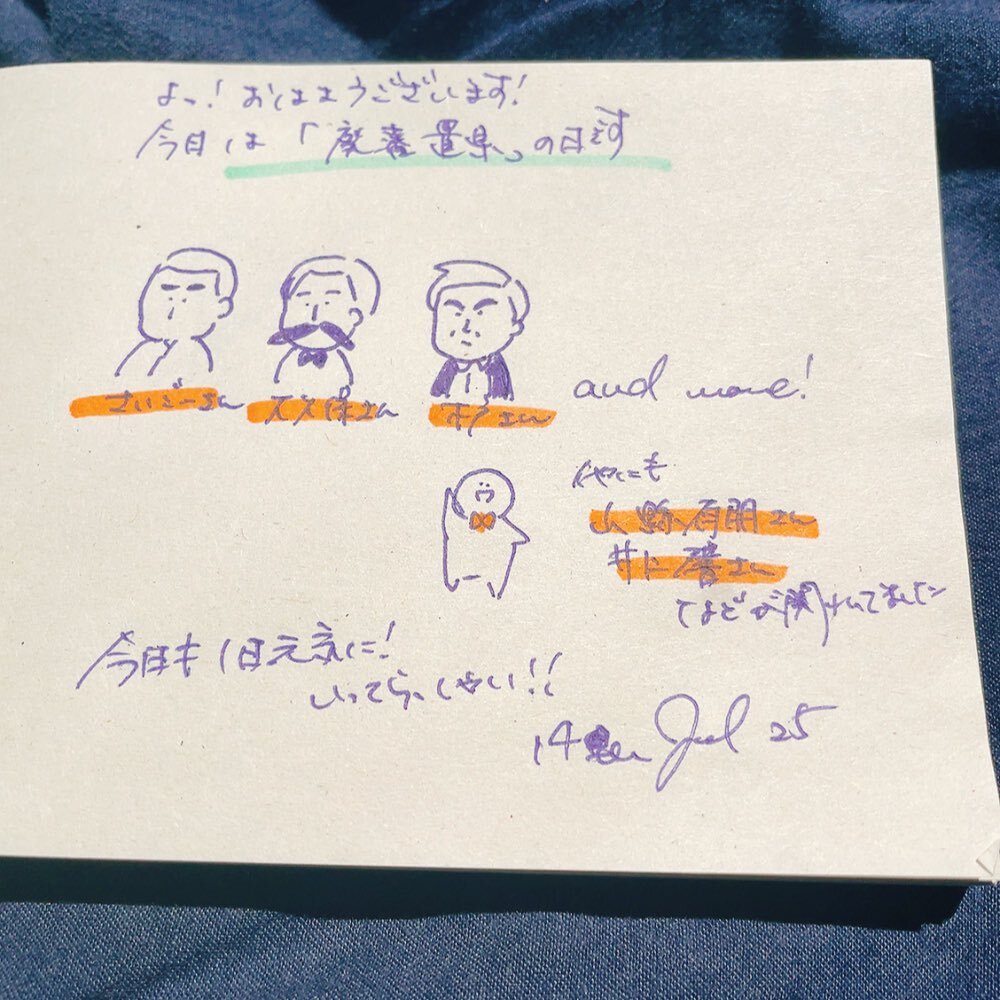 よっ！おはようございます！
今日は「廃藩置県」の日です
さいごーさん
大久保さん
木戸さん
and more!
他にも
山縣有朋さん
井上馨さん
などが関わってました
今日も1日元気に！
いってらっしゃい！！
14 Jul 25